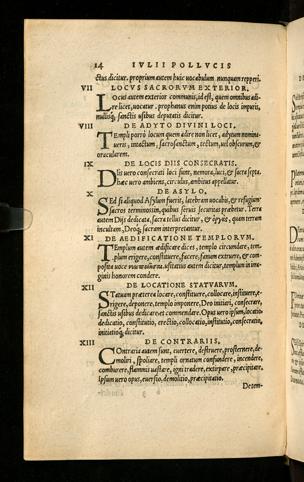 14 IVLII POLLVCIS
ctus dicitur. proprium autem huic uocabulum nunquam repperi.
VII LOCVS SACRORVM EXTERIOR.
LOcus autem exterior communis, id est, quem omnibus adi-
re licet, uocatur. prophanus enim potius de locis impuris,
nullisq; sanctis usibus deputatis dicitur.
VIII DE ADYTO DIVINI LOCI.
TEmpli porrò locum quem adire non licet, adytum nomina-
ueris, intactum, sacrosanctum, tectum, uel obscurum, &
oracularem.
IX DE LOCIS DIIS CONSECRATIS.
DIis uero consecrati loci sunt, nemora, luci, & sacra septa.
hæc uero ambiens, circulus, ambitus appellatur.
X DE ASYLO.
SEd si aliquod Asylum fuerit, latebram uocabis, & refugium
sacros terminosq;, quibus seruis securitas præbetur. Terra
autem Diis dedicata, sacra tellus dicitur, &
incultam, Deoq; sacram interpretantur.
XI DE AEDIFICATIONE TEMPLORVM.
TEmplum autem ædificare dices, templo circundare, tem-
plum erigere, constituere, sacere, fanum extruere, & com-
posita uoce usitatius autem dicitur, templum in ima-
ginis honorem condere.
XII DE LOCATIONE STATVARVM.
STatuam præterea locare, constituere, collocare, instituere, e-
rigere, deponere, templo imponere, Deo initiari, consecrare,
sanctis usibus dedicare, et commendare. Opus uero ipsum, locatio
dedicatio, constitutio, erectio, collocatio, institutio, consecratio,
initiatioq; dicitur.
XIII DE CONTRARIIS.
COntraria autem sunt, euertere, destruere, prosternere, de-
moliri, spoliare, templi ornatum confundere, incendere,
comburere, flammis uastare, igni tradere, extirpare, præcipitare.
ipsum uero opus, euersio, demolitio, præcipitatio.
Detem-